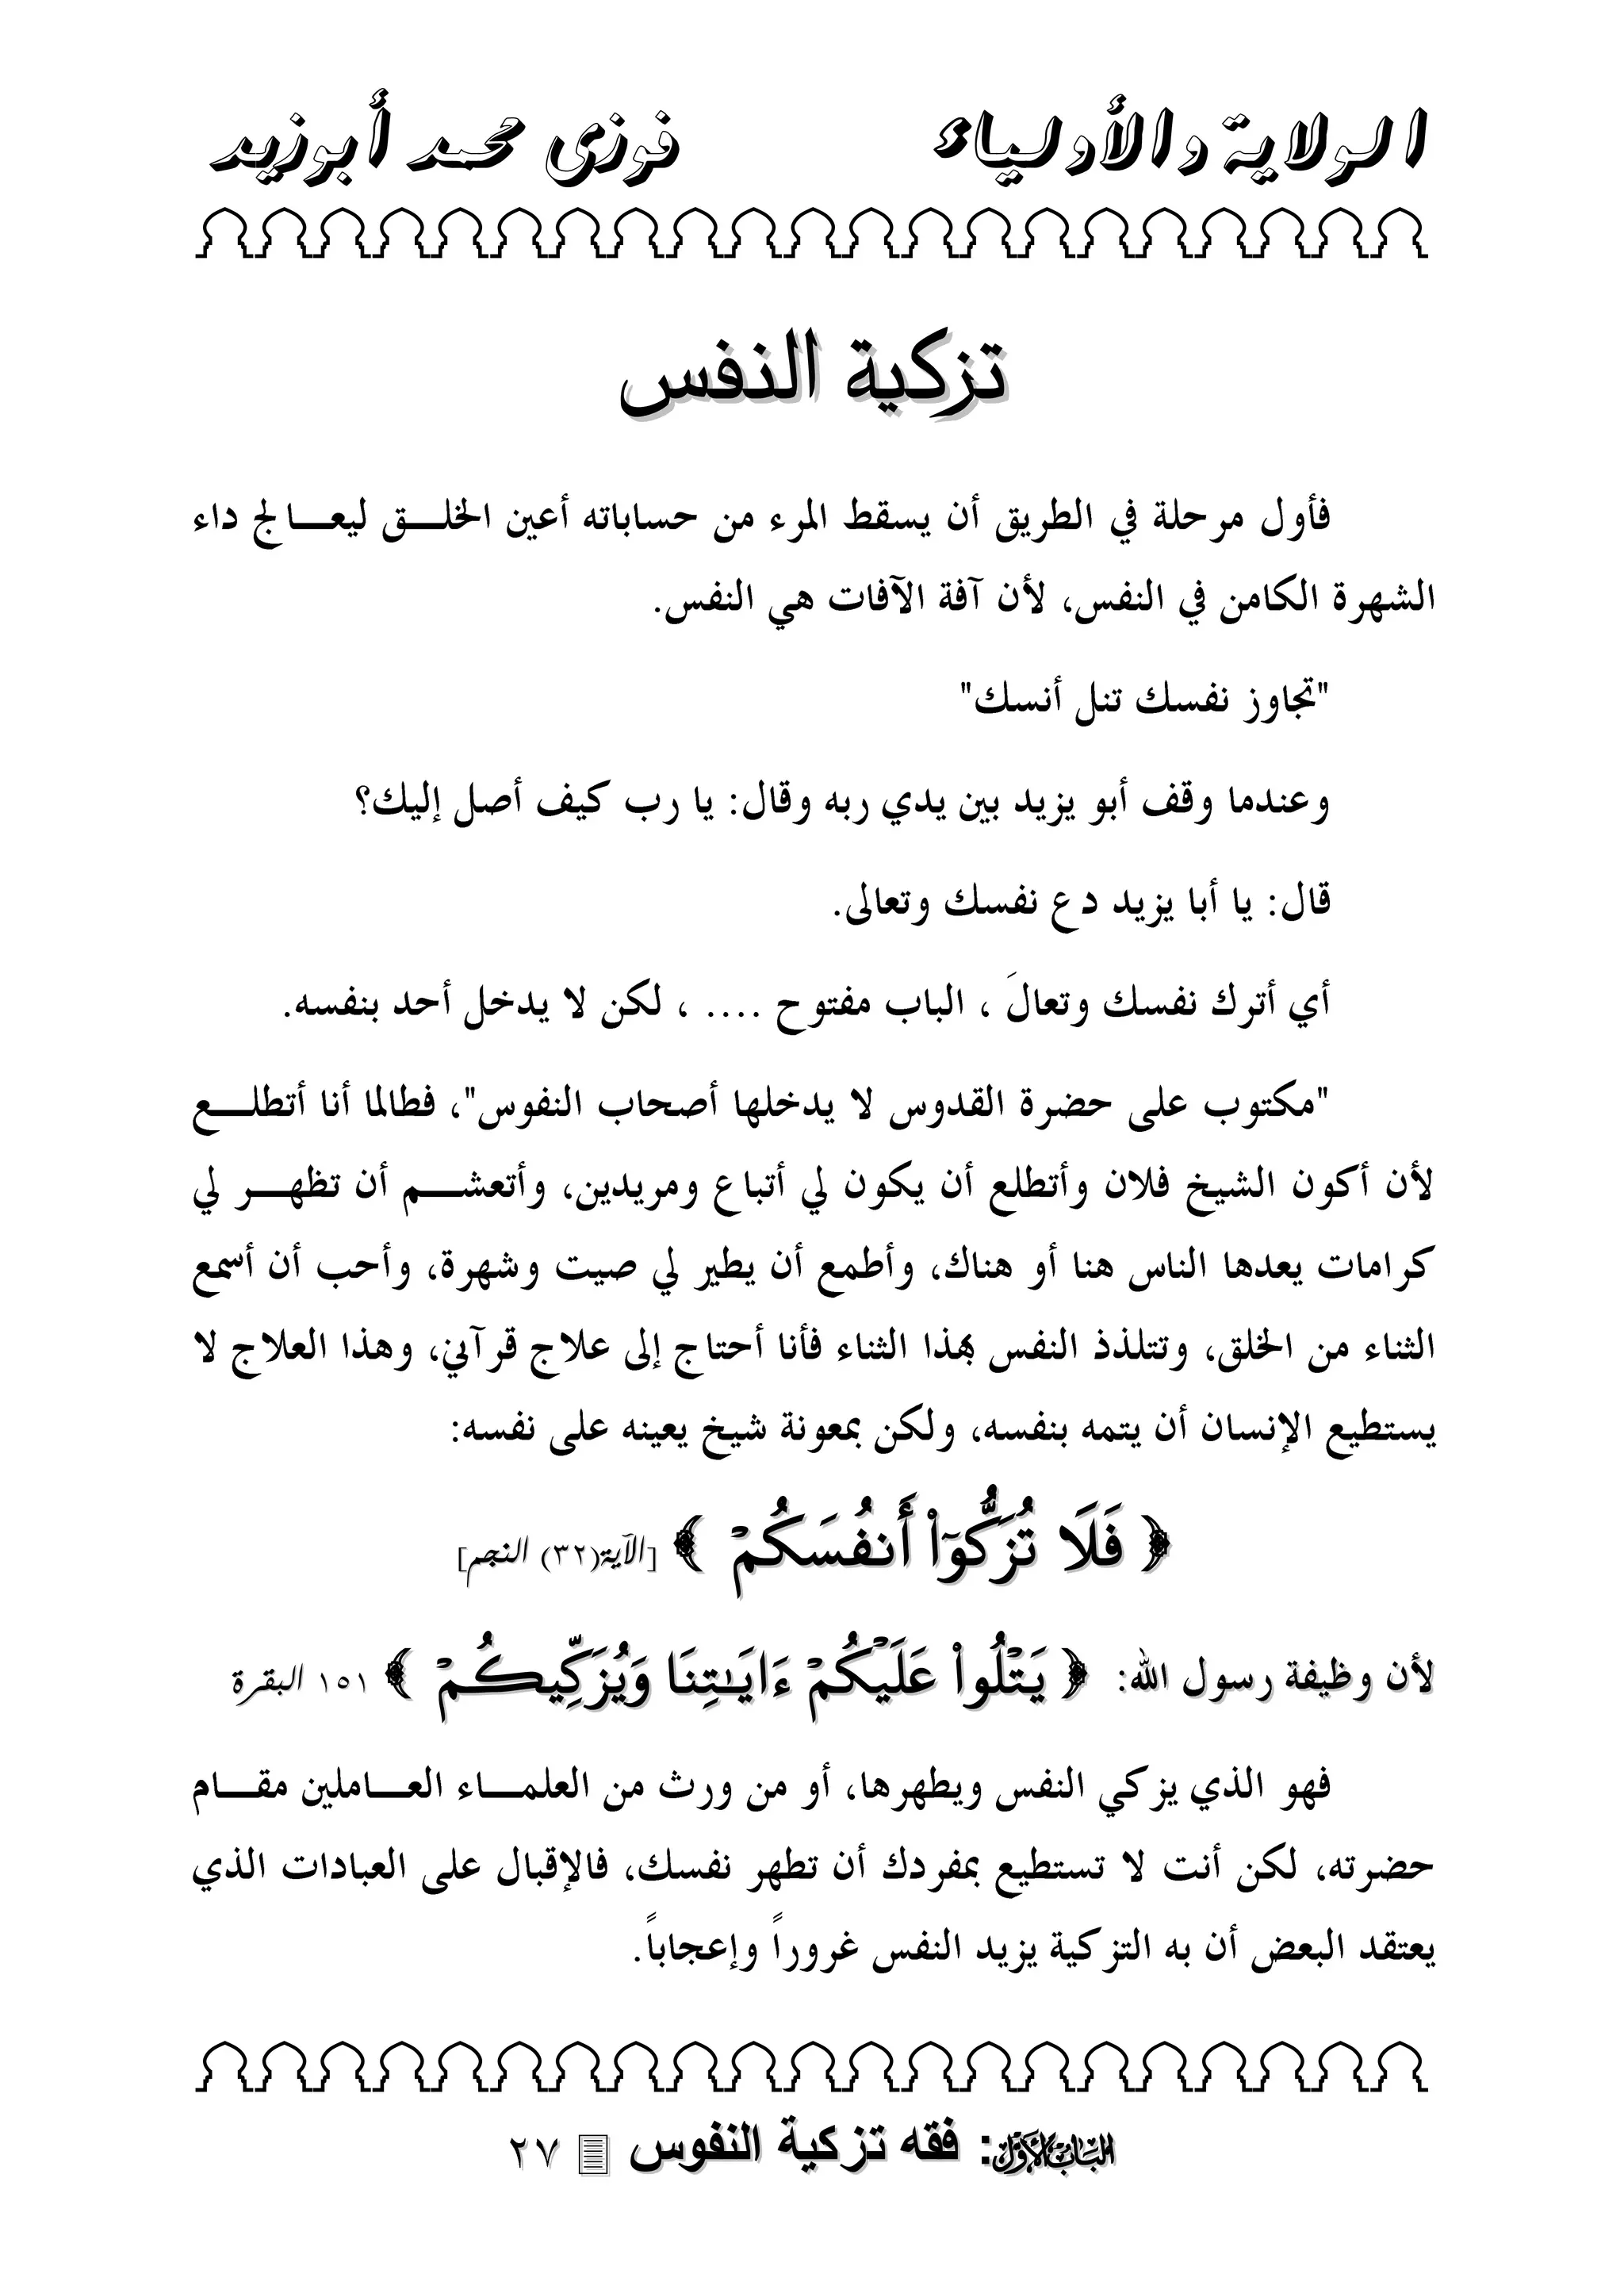 الولاية والأولياء فوزى محمد أبوزيد
تزكية النفس
فأول مرحلة في الطريق أن يسقط المرء من حساباته أعين الخلق ليعالج داء
الشهرة الكامن في النفس، لأن آفة الآفات هي النفس.
"تجاوز نفسك تنل أنسك"
وعندما وقف أبو يزيد بين يدي ربه وقال: يا رب كيف أصل إليك؟
قال: يا أبا يزيد دع نفسك وتعالى.
أي أترك نفسك وتعالَ ، الباب مفتوح .... ، لكن لا يدخل أحد بنفسه.
"مكتوب على حضرة القدوس لا يدخلها أصحاب النفوس"، فطالما أنا أتطلع
لأن أكون الشيخ فلان وأتطلع أن يكون لي أتباع ومريدين، وأتعشم أن تظهر لي
كرامات يعدها الناس هنا أو هناك، وأطمع أن يطير لي صيت وشهرة، وأحب أن أسمع
الثناء من الخلق، وتتلذذ النفس بهذا الثناء فأنا أحتاج إلى علاج قرآني، وهذا العلاج لا
يستطيع الإنسان أن يتمه بنفسه، ولكن بمعونة شيخ يعينه على نفسه:
﴿ فَلَا تُزَكُّوٓا۟ أَنفُسَكُمْ ﴾ [الآية(٣٢) النجم]
لأن وظيفة رسول الله: ﴿ يَتْلُوا۟ عَلَيْكُمْ ءَايَـٰتِنَا وَيُزَكِّيكُمْ ﴾ ١٥١ البقرة
فهو الذي يزكي النفس ويطهرها، أو من ورث من العلماء العاملين مقام
حضرته، لكن أنت لا تستطيع بمفردك أن تطهر نفسك، فالإقبال على العبادات الذي
يعتقد البعض أن به التزكية يزيد النفس غروراً وإعجاباً.
الباب الأول: فقه تزكية النفوس ٢٧